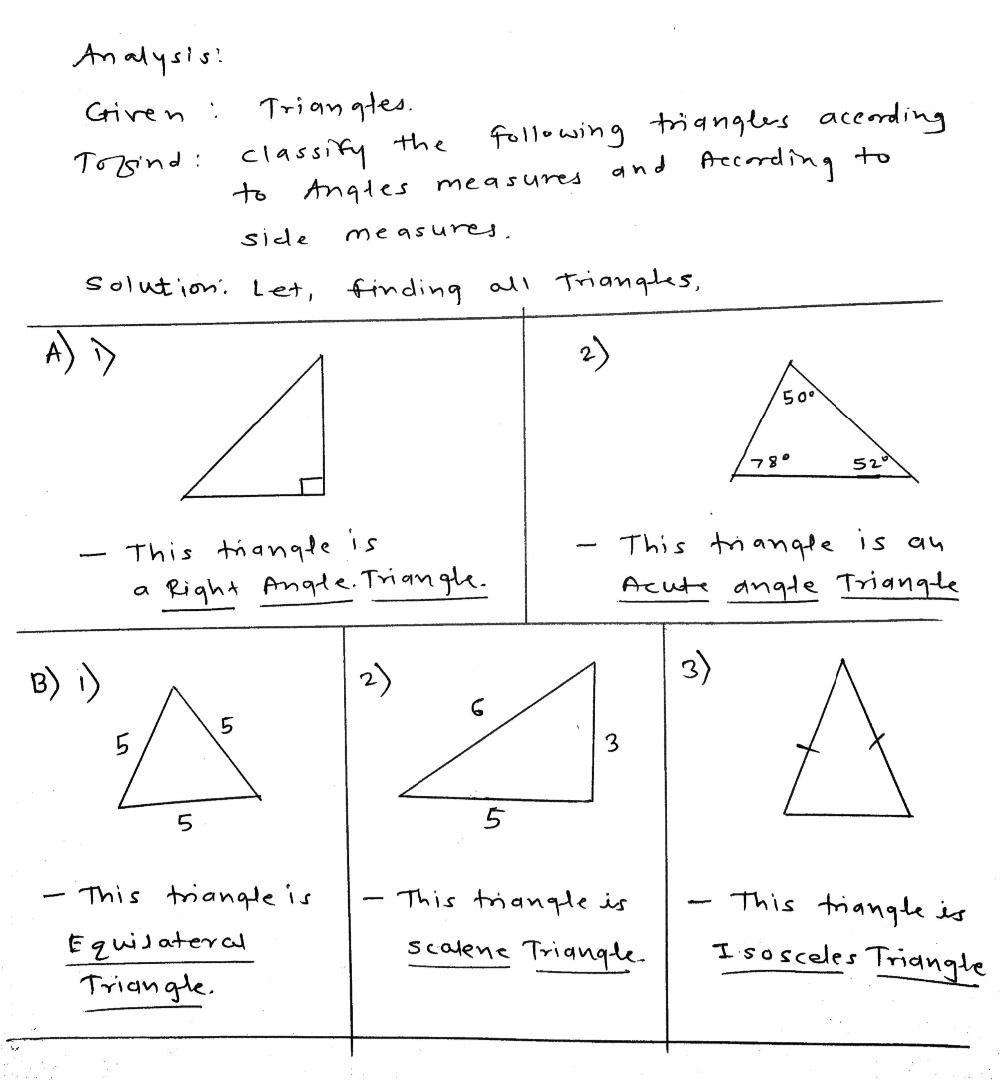 Analysis:
Given : Triangles.
To find : classify the following triangles according
to Angles measures and According to
side measures.
Solution: Let, finding all Triangles,
A) 1)
- This triangle is
a Right Angle. Triangle.
2)
50°
78° 52°
- This triangle is an
Acute angle Triangle
B) 1)
5 5
5
- This triangle is
Equilateral
Triangle.
2)
6
3
5
- This triangle is
Scalene Triangle.
3)
- This triangle is
Isosceles Triangle